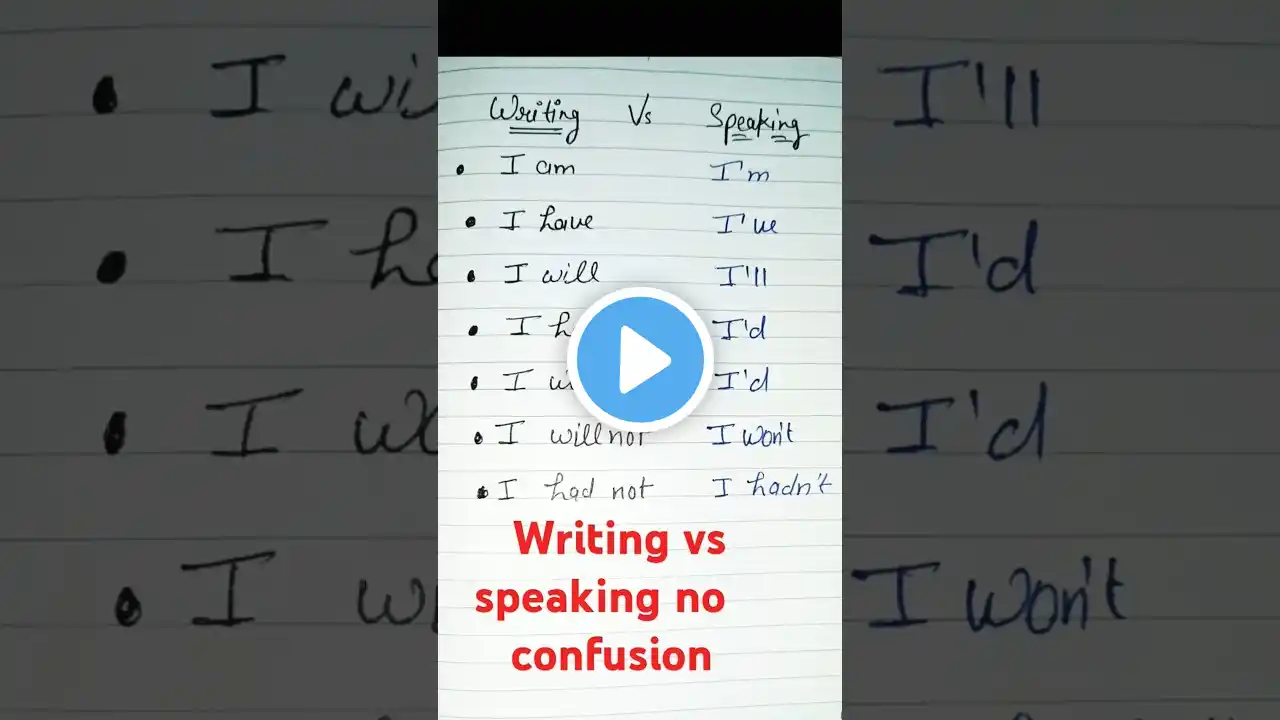 Writing Vs Speaking
• I am I'm
• I have I've
• I will I'll
• I I'd
• I I'd
• I will not I won't
• I had not I hadn't
Writing vs
speaking no
confusion